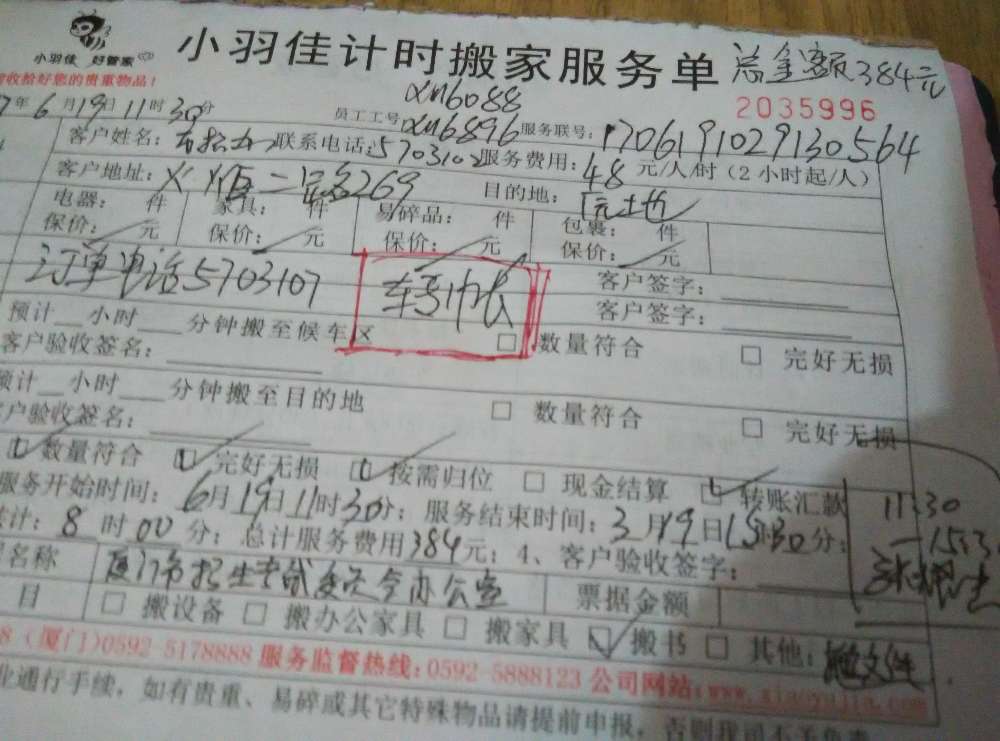 小羽佳计时搬家服务单 总金额384元
小羽佳 好管家
收拾好您的贵重物品！
2035996
7年6月19日11时30分
员工工号 xm6088
xm6896 服务联号：170619102913​0564
客户姓名： 联系电话：5703107 服务费用：48元/人/时（2小时起/人）
客户地址： 269 目的地：原地
电器： 件 家具： 件 易碎品： 件 包裹： 件
保价： 元 保价： 元 保价： 元 保价： 元
订单电话5703107 客户签字：
客户签字：
预计 小时 分钟搬至候车 数量符合 完好无损
客户验收签名：
预计 小时 分钟搬至目的地 数量符合 完好无损
客户验收签名：
数量符合 完好无损 按需归位 现金结算 转账汇款
服务开始时间：6月19日11时30分；服务结束时间：3月19日15时30分； 11:30
计：8时00分；总计服务费用384元；4、客户验收签字：
名称 厦门市招生考试委员会办公室 票据金额
目 搬设备 搬办公家具 搬家具 搬书 其他：搬文件
8（厦门）0592-5178888 服务监督热线：0592-5888123 公司网站：www.xiaoyujia.com
业通行手续，如有贵重、易碎或其它特殊物品请提前申报，否则我司不予负责